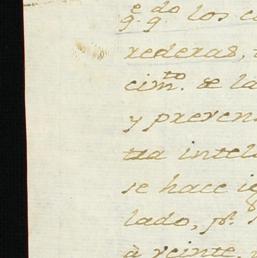 q.e q.do los c
rederas,
cim.to de la
y preven
tra intel
se hace ig
lado, p.r
à veinte,